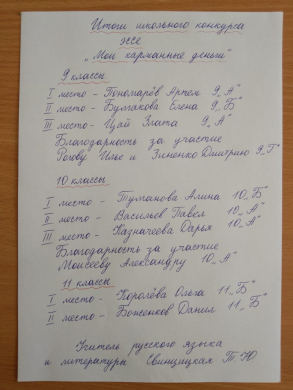 Итоги школьного конкурса
эссе
„Мои карманные деньги"
9 классы
I место - Пономарёв Артем 9„А"
II место - Булгакова Елена 9„Б"
III место - Цой Злата 9„А"
Благодарность за участие
Рогову Илье и Зиненко Дмитрию 9„Г"
10 классы
I место - Туманова Алина 10„Б"
II место - Васильев Павел 10„А"
III место - Казначеева Дарья 10„А"
Благодарность за участие
Моисееву Александру 10„А"
11 классы
I место - Королёва Ольга 11„Б"
II место - Боженков Данил 11„Б"
Учитель русского языка
и литературы Свинцицкая Т Ю